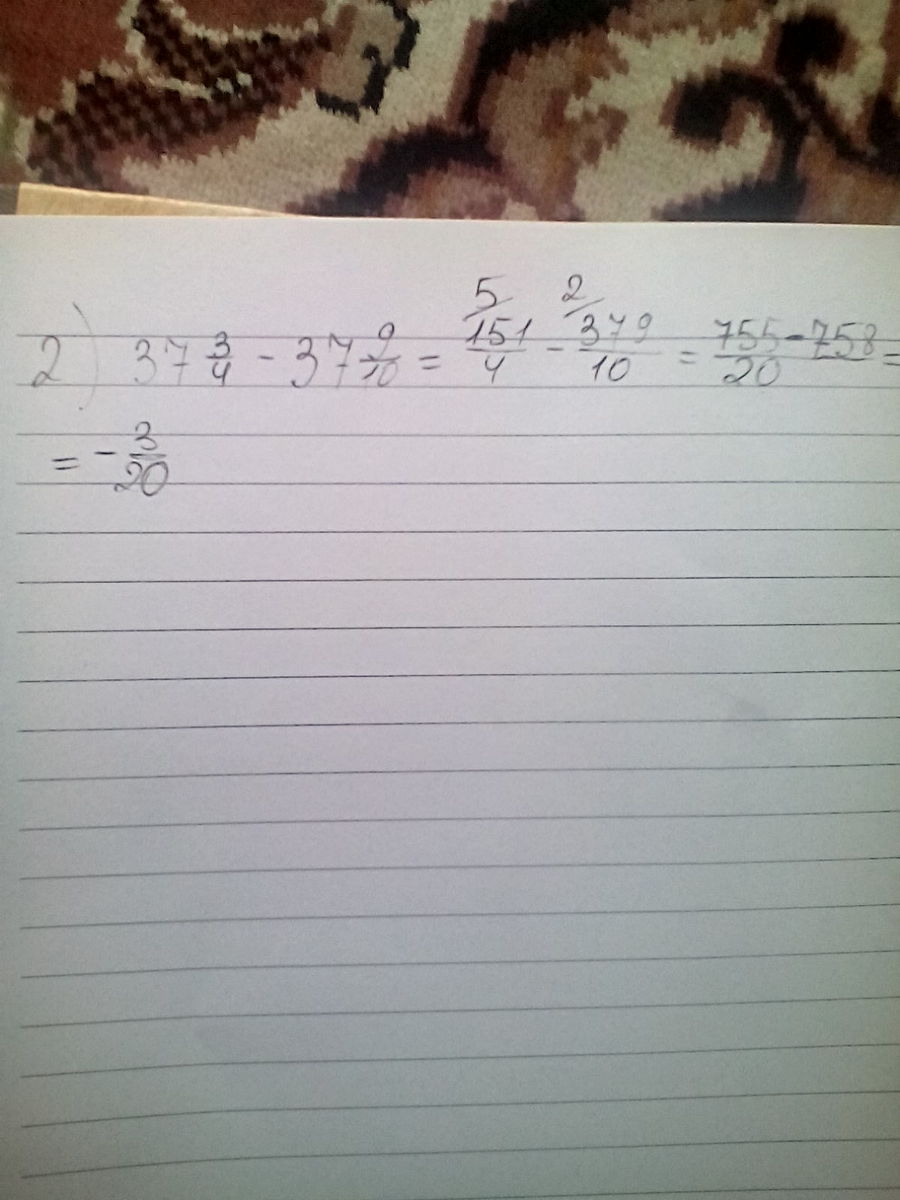 2) 37 3/4 - 37 9/10 = 5/ 151/4 - 2/ 379/10 = 755-758/20 =
= - 3/20